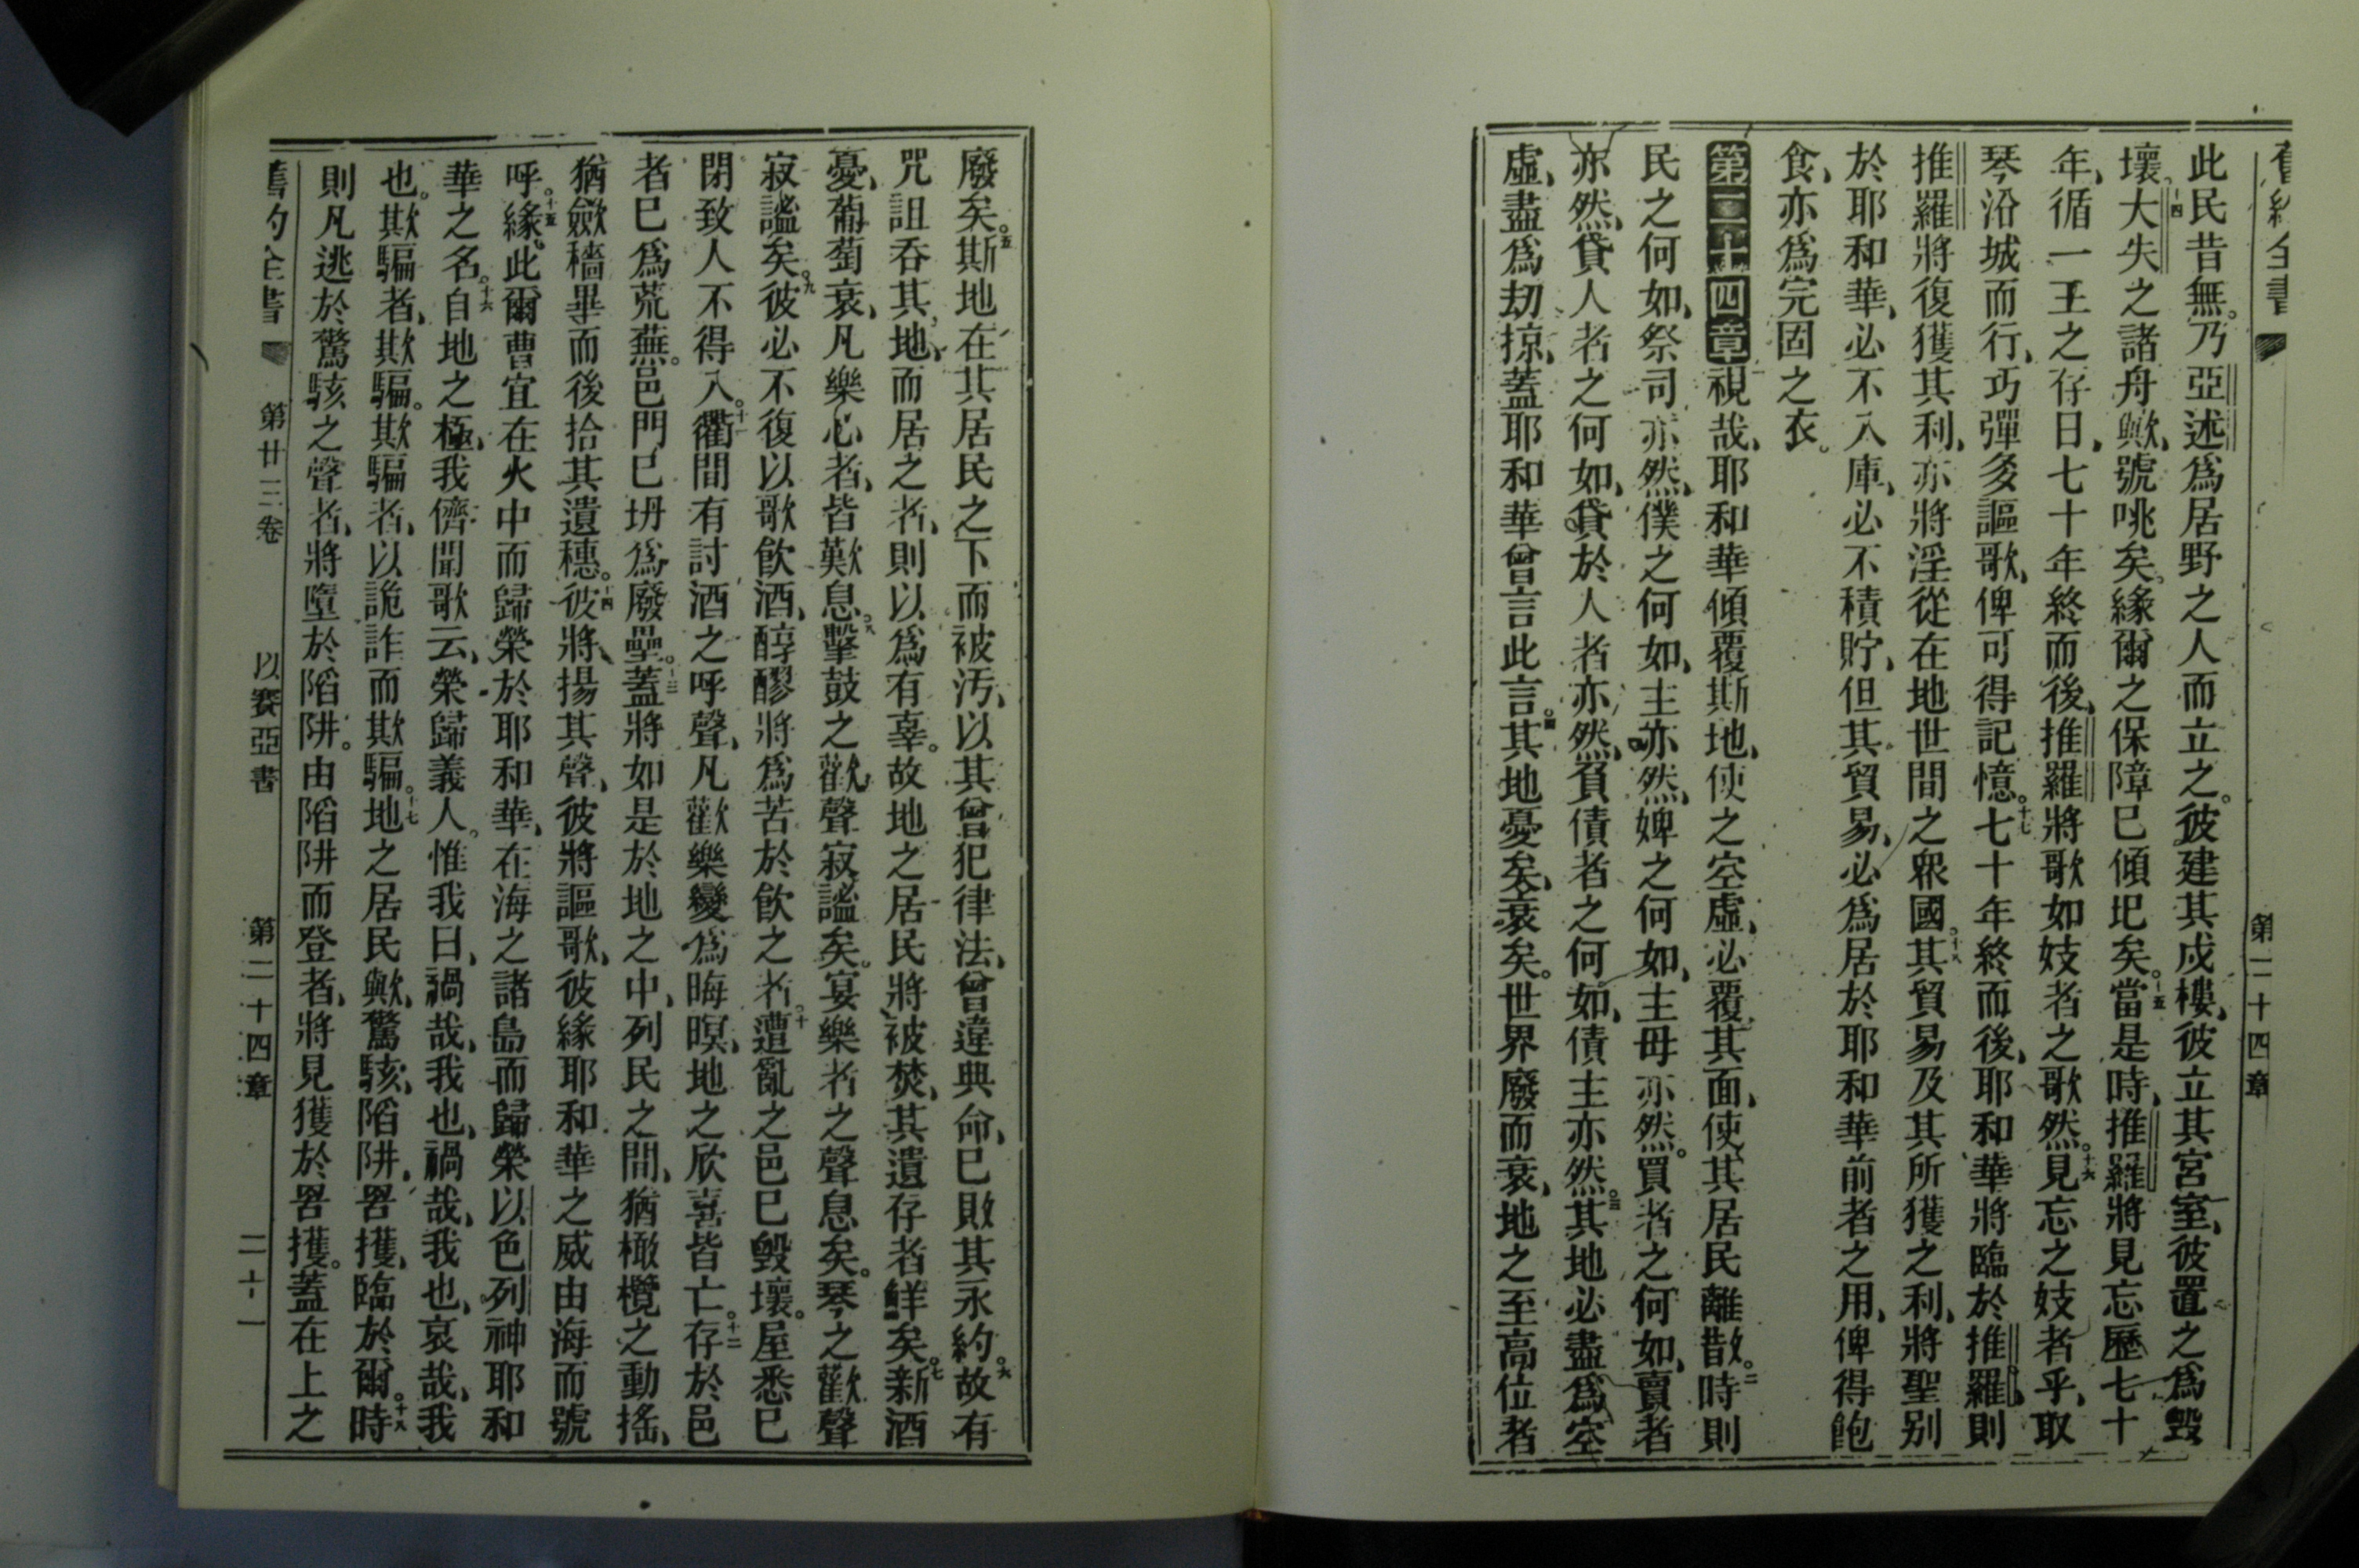 舊約全書 第二十四章
此民昔無。乃亞述爲居野之人而立之。彼建其戍樓、彼立其宮室、彼置之爲毀
壞。十四大失之諸舟歟、號咷矣。緣爾之保障已傾圯矣。十五當是時、推羅將見忘歷七十
年、循一王之存日、七十年終而後、推羅將歌如妓者之歌然。十六見忘之妓者乎、取
琴沿城而行、巧彈多謳歌、俾可得記憶。十七七十年終而後、耶和華將臨於推羅、則
推羅將復獲其利、亦將淫從在地世間之衆國。十八其貿易及其所獲之利、將聖別
於耶和華、必不入庫、必不積貯、但其貿易、必爲居於耶和華前者之用、俾得飽
食、亦爲完固之衣。
第二十四章視哉、耶和華傾覆斯地、使之空虛、必覆其面、使其居民離散。二時則
民之何如、祭司亦然、僕之何如、主亦然、婢之何如、主母亦然。買者之何如、賣者
亦然、貸人者之何如、貸於人者亦然、負債者之何如、債主亦然。三其地必盡爲空
虛、盡爲刧掠、蓋耶和華曾言此言。四其地憂矣、衰矣。世界廢而衰、地之至高位者
廢矣。五斯地在其居民之下而被汚、以其曾犯律法、曾違典命、已敗其永約。六故有
咒詛吞其地、而居之者、則以爲有辜。故地之居民將被焚、其遺存者鮮矣。七新酒
憂、葡萄衰、凡樂心者、皆歎息。八鼙鼓之歡聲寂謐矣。宴樂者之聲息矣。琴之歡聲
寂謐矣。九彼必不復以歌飮酒、醇醪將爲苦於飮之者。十遭亂之邑已毀壞。屋悉已
閉致人不得入。十一衢間有討酒之呼聲、凡歡樂變爲晦暝、地之欣喜皆亡。十二存於邑
者已爲荒蕪。邑門已坍爲廢壘。十三蓋將如是於地之中、列民之間、猶橄欖之動搖、
猶斂穡畢而後拾其遺穗。十四彼將揚其聲、彼將謳歌、彼緣耶和華之威由海而號
呼。十五緣此爾曹宜在火中而歸榮於耶和華、在海之諸島而歸榮以色列神耶和
華之名。十六自地之極、我儕聞歌云、榮歸義人。惟我曰、禍哉、我也、禍哉、我也、哀哉、我
也。欺騙者、欺騙。欺騙者、以詭詐而欺騙。十七地之居民歟、驚駭、陷阱、罟擭、臨於爾。十八時
則凡逃於驚駭之聲者、將墮於陷阱。由陷阱而登者、將見獲於罟擭。蓋在上之
舊約全書 第廿三卷 以賽亞書 第二十四章 二十一